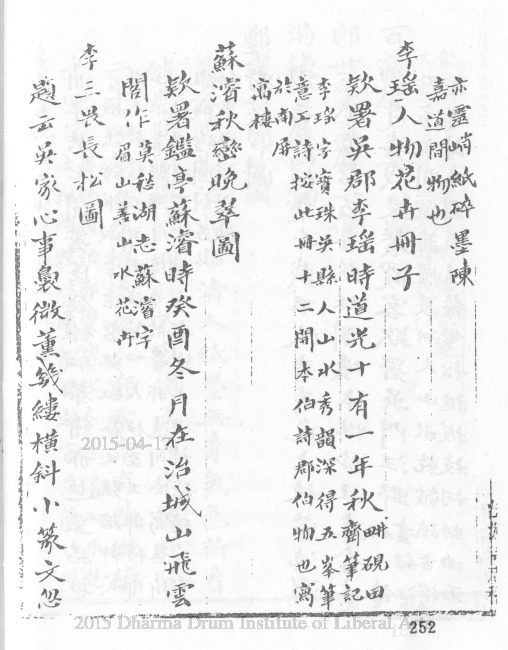 亦靈峭紙碎墨陳
嘉道間物也
李瑤人物花卉冊子
欵署吳郡李瑤時道光十有一年秋
畊硯田齋筆記
李瑤字寶珠吳縣人山水秀韻深得五峯筆
意工詩按此冊十二開本伯詩郡伯物也寓
於南屏
寓樓
蘇濬秋巒晚翠圖
欵署鑑亭蘇濬時癸酉冬月在治城山飛雲
閣作
莫愁湖志蘇濬字
眉山善山水花卉
李三畏長松圖
題云吳家心事裊微薰幾縷橫斜小篆文忽
2015-04-17
2015 Dharma Drum Institute of Liberal A
252